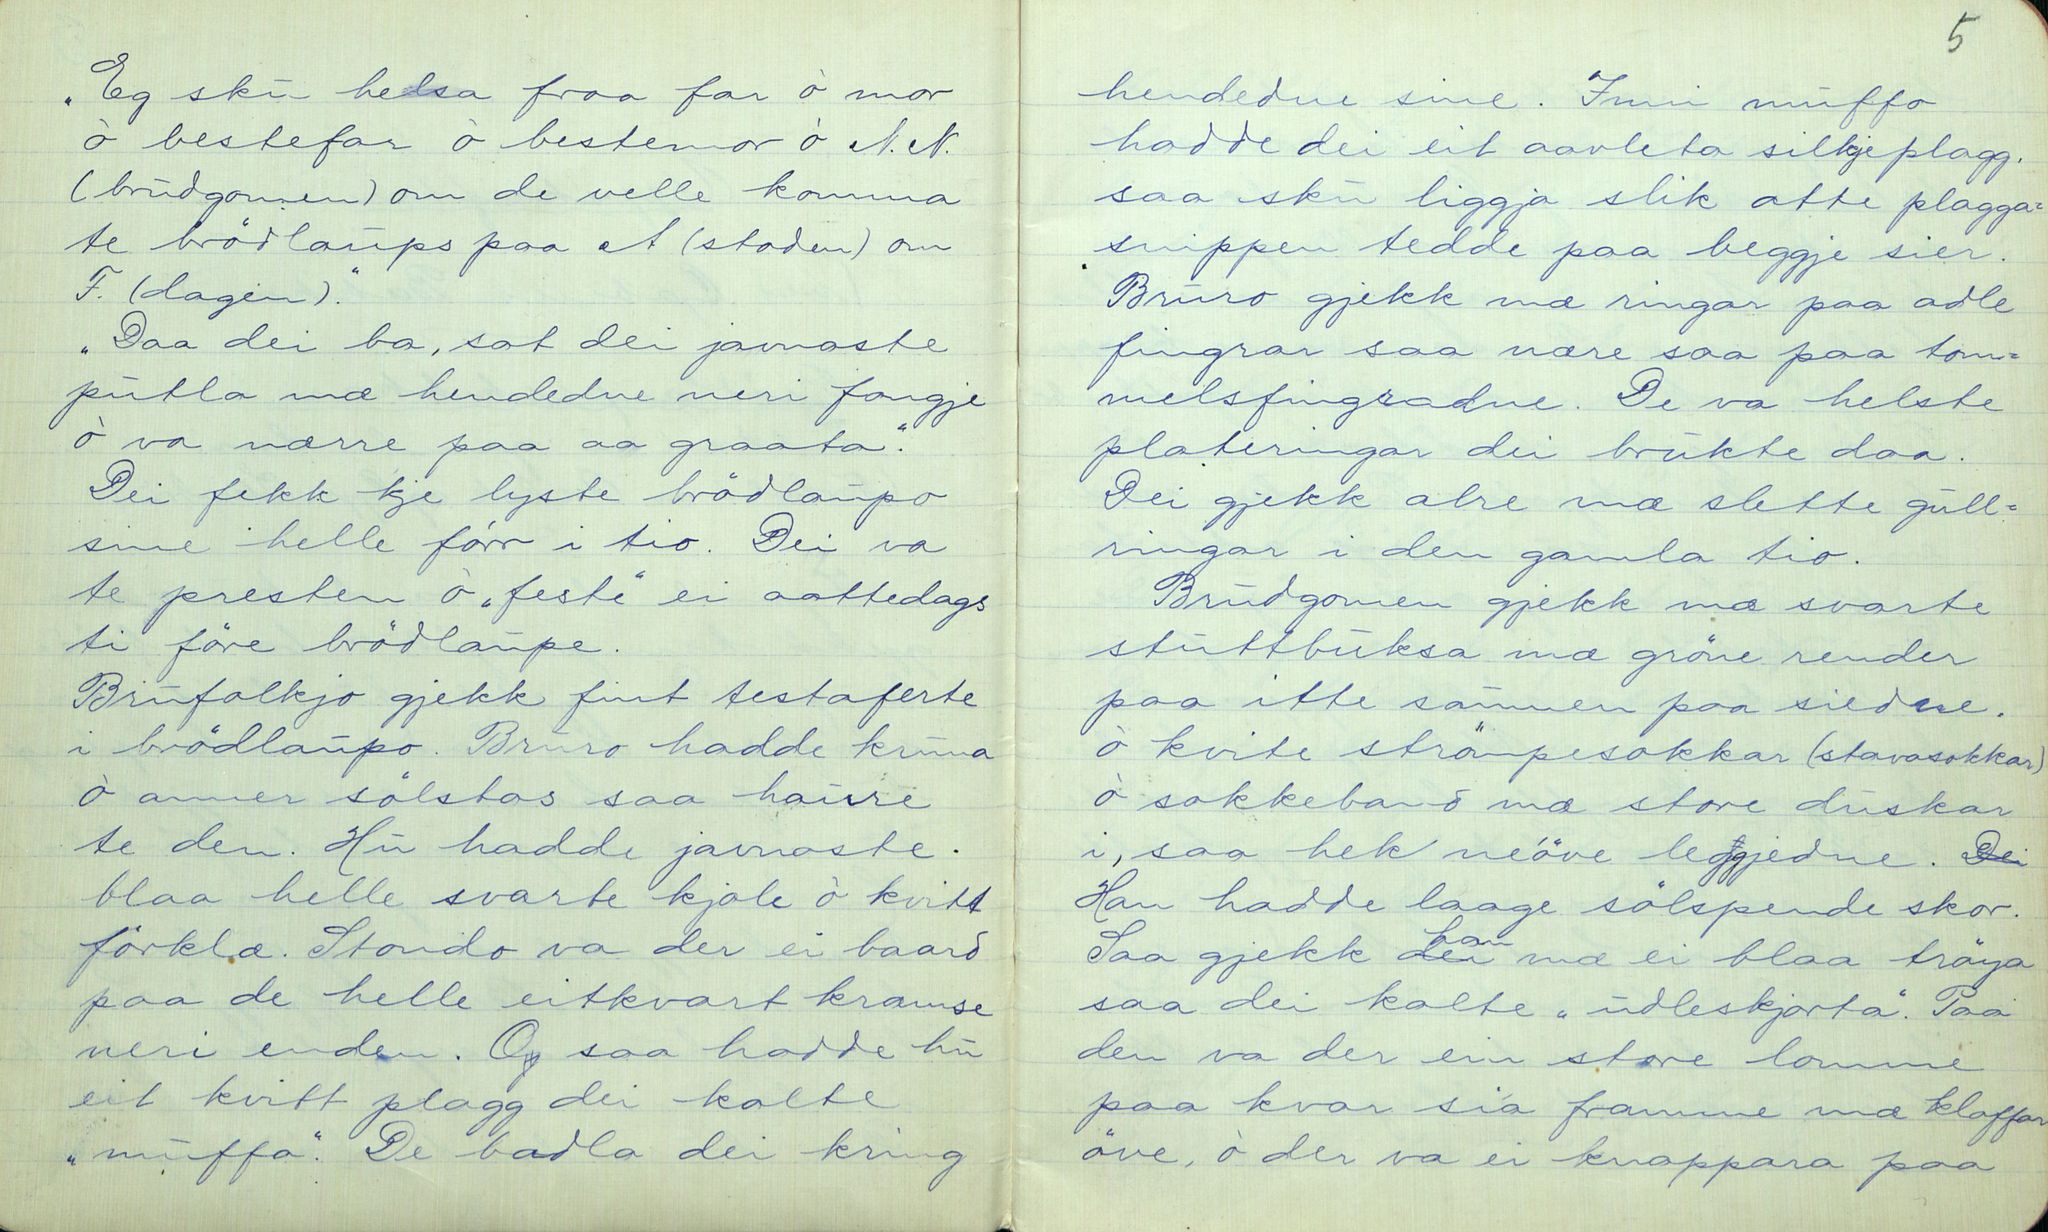 „Eg skū helsa fraa far ò mor
ò bestefar ò bestemor ò N. N.
(brūdgomen) om de velle komma
te brödlaūps paa N (staden) om
F. (dagen).“
„Daa dei ba, sat dei javnaste
pūtla mæ hendedne neri fangje
ò va nærre paa aa graata“.
Dei fekk kje lyste brödlaūpo
sine helle förr i tio. Dei va
te presten ò „feste“ ei aattedags
ti före brödlaūpe.
Brūfolkjo gjekk fint testaferte
i brödlaūpo. Brūro hadde krūna
ò anner sölstas saa haūre
te den. Hū hadde javnaste
blaa helle svarte kjole ò kvitt
förklæ. Stondo va der ei baard
paa de helle eitkvart kramse
neri enden. Og saa hadde hū
eit kvitt plagg dei kalte
„mūffa“. De badla dei kring
5
hendedne sine. Inni mūffo
hadde dei eit aavleta silkjeplagg.
saa skū liggja slik atte plagga=
snippen tedde paa beggje sier.
Brūro gjekk mæ ringar paa adle
fingrar saa nære saa paa tom=
melsfingradne. De va helste
plateringar dei brūkte daa.
Dei gjekk alre mæ slette gūll=
ringar i den gamla tio.
Brūdgomen gjekk mæ svarte
stūttbūksa mæ gröne render
paa itte saūmen paa siedne.
ò kvite strömpesokkar (stavasokkar)
ò sokkeband mæ store dūskar
i, saa hek neöve leggjedne. Dei
Han hadde laage sölspende skor.
Saa gjekk dei han mæ ei blaa tröya
saa dei kalte „ūdleskjorta“. Paa
den va der ein store lomme
paa kvar sia framme mæ klaffar
öve, ò der va ei knappara paa